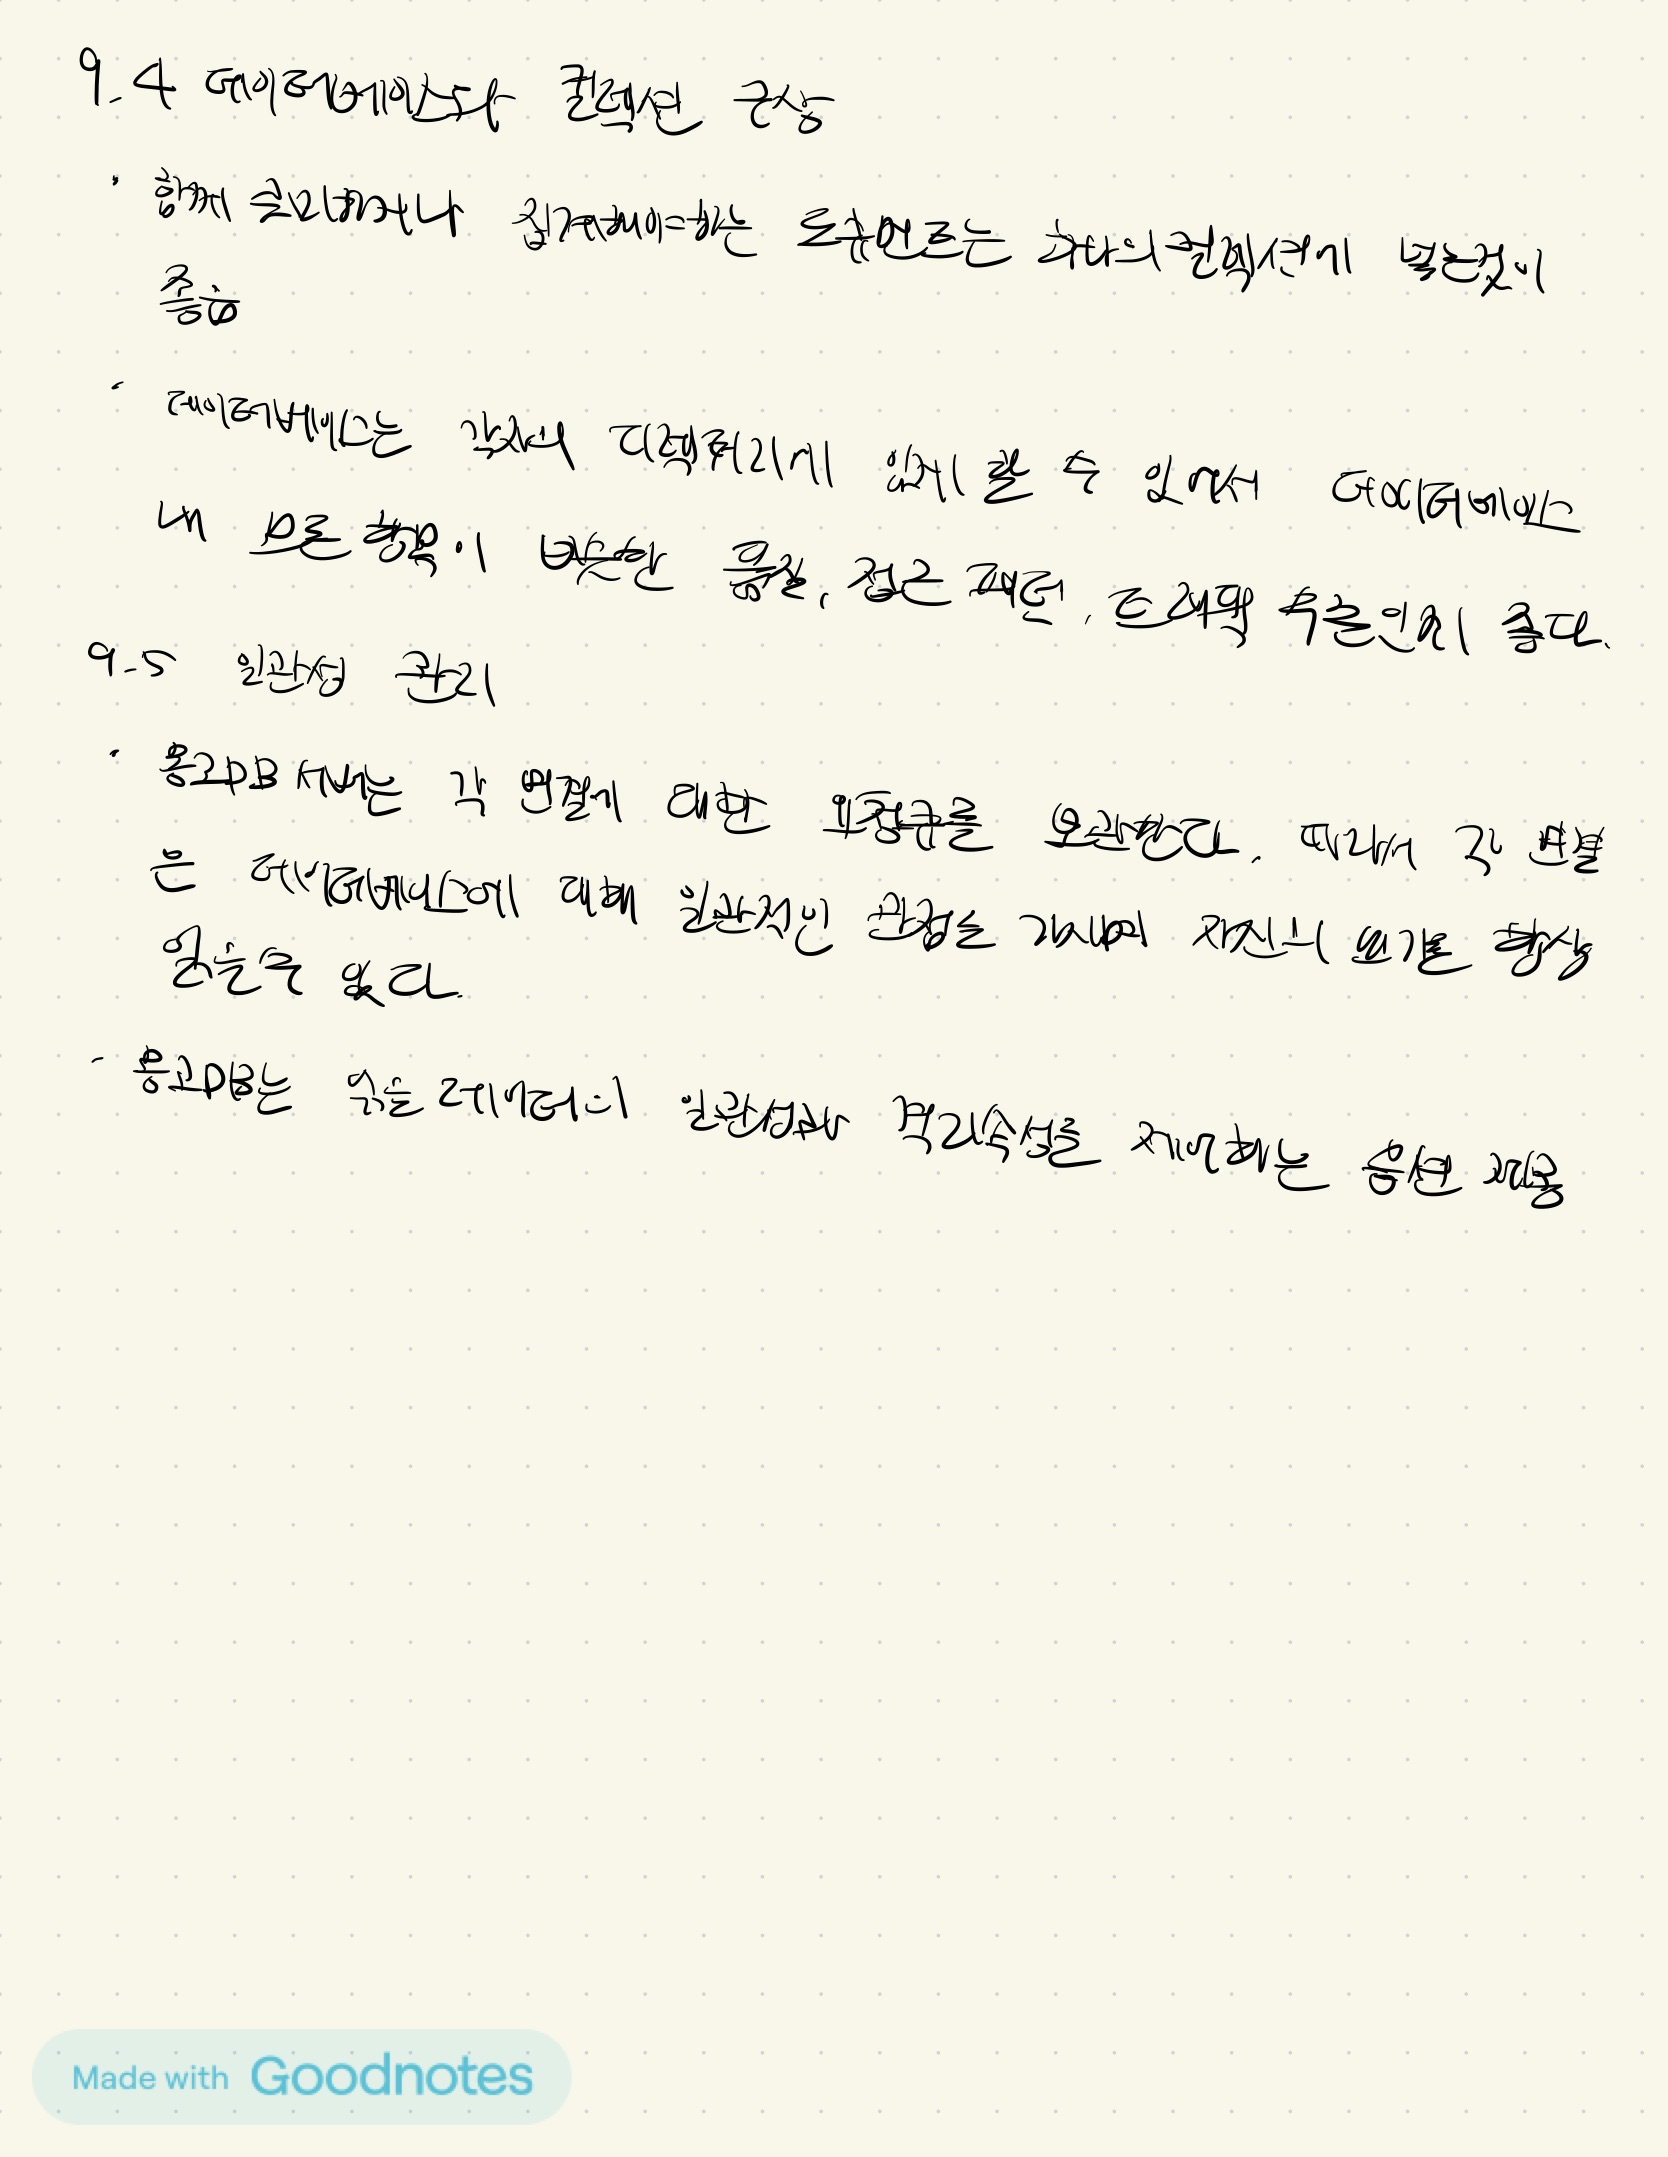 9.4 데이터베이스와 컬렉션 구상
· 함께 쿼리하거나 집계해야하는 도큐먼트는 하나의 컬렉션에 넣는것이
좋음
· 데이터베이스는 각자의 디렉터리에 있게 할 수 있어서 데이터베이스
내 모든 항목이 비슷한 품질, 접근 패턴, 트래픽 수준인게 좋다.
9.5 일관성 관리
· 몽고DB 서버는 각 연결에 대한 요청큐를 보관한다. 따라서 각 연결
은 데이터베이스에 대해 일관적인 관점을 가지며 자신의 쓰기를 항상
읽을수 있다.
· 몽고DB는 읽을 데이터의 일관성과 격리속성을 제어하는 옵션 제공
Made with Goodnotes